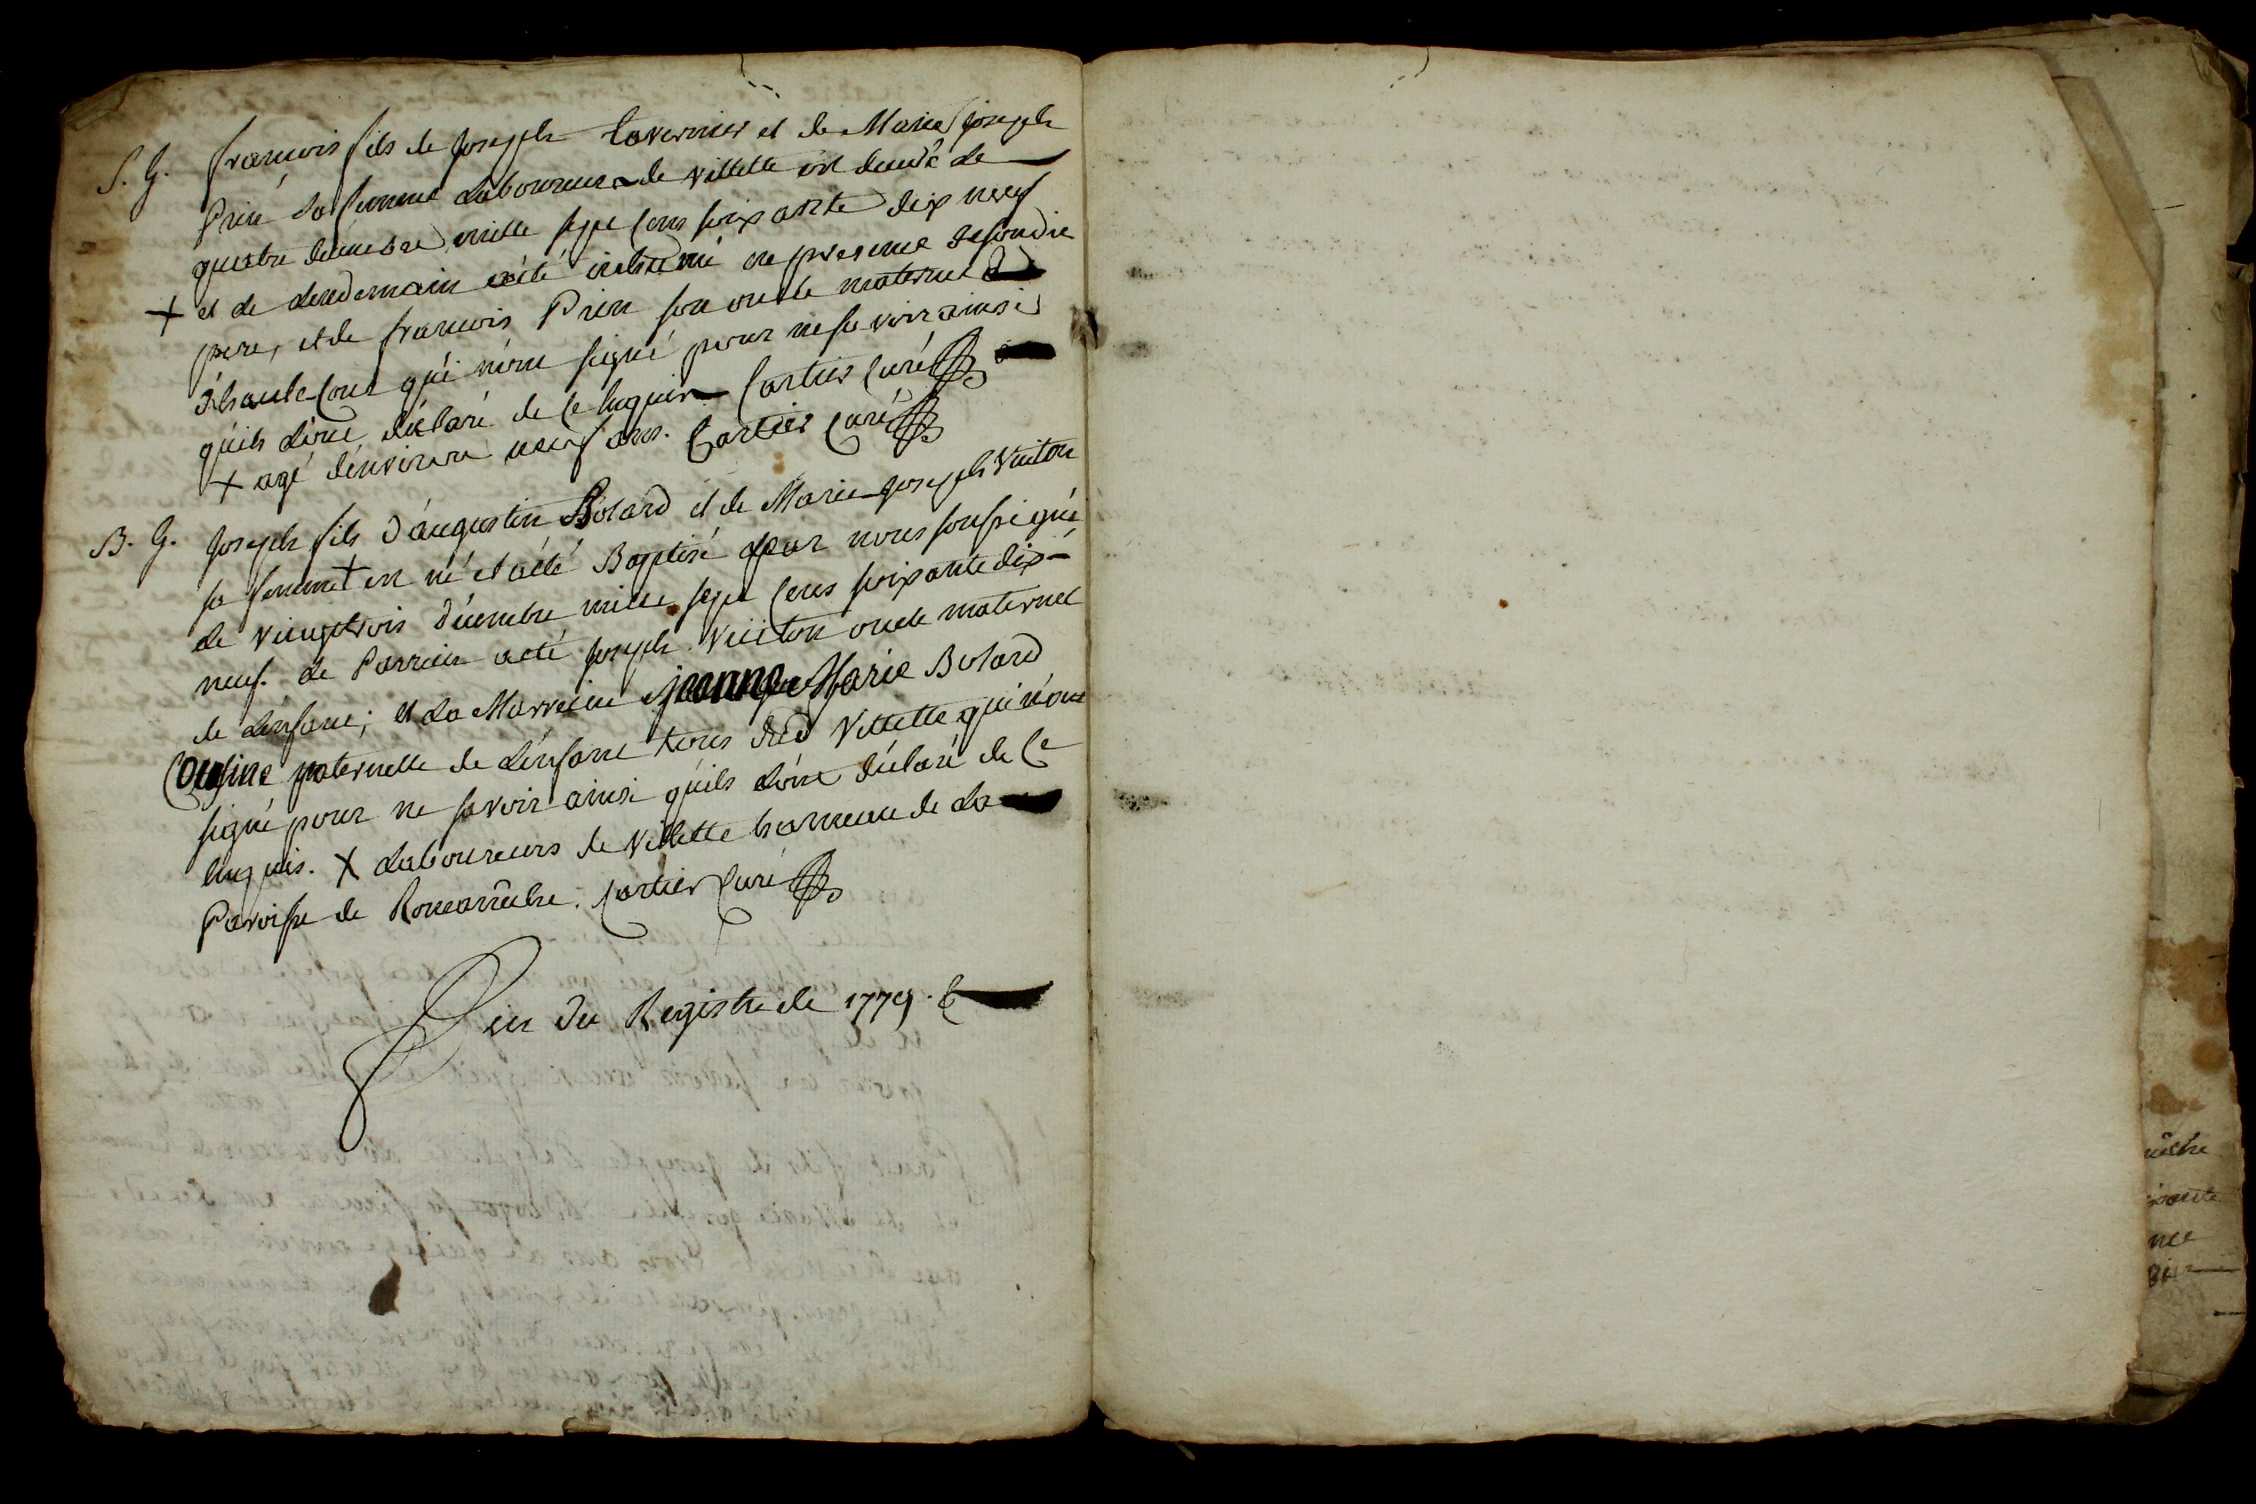 S. G. françois fils de joseph tavernier et de Marie joseph
Prin sa femme Laboureur de villette est decedé le
quatre decembre mille sept cens soixante dix neuf
+ et le lendemain a été inhumé en presence de son dit
pere, et de françois Prin son oncle maternel
d'hautecour qui n'ont signé pour ne savoir ainsi
qu'ils l'ont déclaré de ce enquis Cartier Curé
+ agé d'environ neuf ans. Cartier Curé
B. G. joseph fils d'augustin Bolard et de Marie joseph Vuiton
sa femme + est né et a été Baptisé par nous soussigné
le vingt trois décembre mille sept cens soixante dix
neuf. le Parrein a été joseph Vuiton oncle maternel
de L'enfant; et La Marreine jeanne Marie Bolard
Cousine paternelle de L'enfant tous dud Villette qui n'ont
signé pour ne savoir ainsi qu'ils L'ont déclaré de Ce
Enquis. + Laboureurs de Villette hammeau de La
Paroisse de . Cartier Curé
Fin du Registre de 1779.